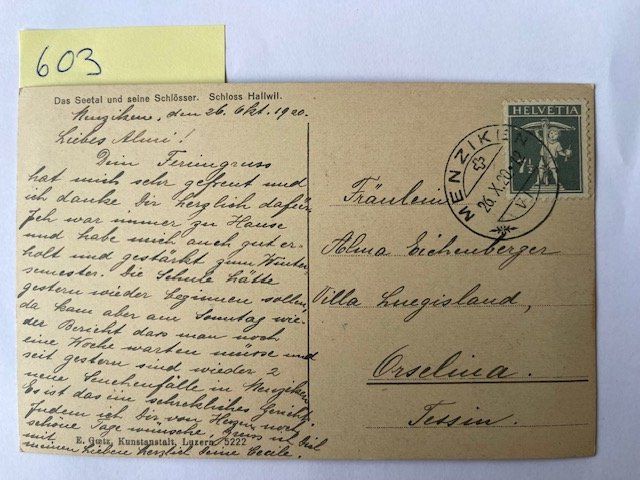 603
Das Seetal und seine Schlösser. Schloss Hallwil.
Menziken, den 26. Okt. 1920.
Liebes Almi!
Dein Feriengruss
hat mich sehr gefreut und
ich danke Dir herzlich dafür.
Ich war immer zu Hause
und habe mich auch gut er-
holt und gestärkt zum Winter
semester. Die Schule hätte
gestern wieder beginnen sollen,
da kam aber am Sonntag wie-
der Bericht dass man noch
eine Woche warten müsse und
seit gestern sind wieder 2
neue Seuchenfälle in Menziken
Es ist das ein schreckliches Gericht.
Indem ich Dir von Herzen noch
schöne Tage wünsche, grüss ich Dich
mit
meinen Lieben herzlich Deine Cecile.
E. Goetz, Kunstanstalt, Luzern. 5222
HELVETIA
7½
MENZIKEN
26.X.20
Fräulein
Alma Eichenberger
Villa Luegisland,
Orselina.
Tessin.